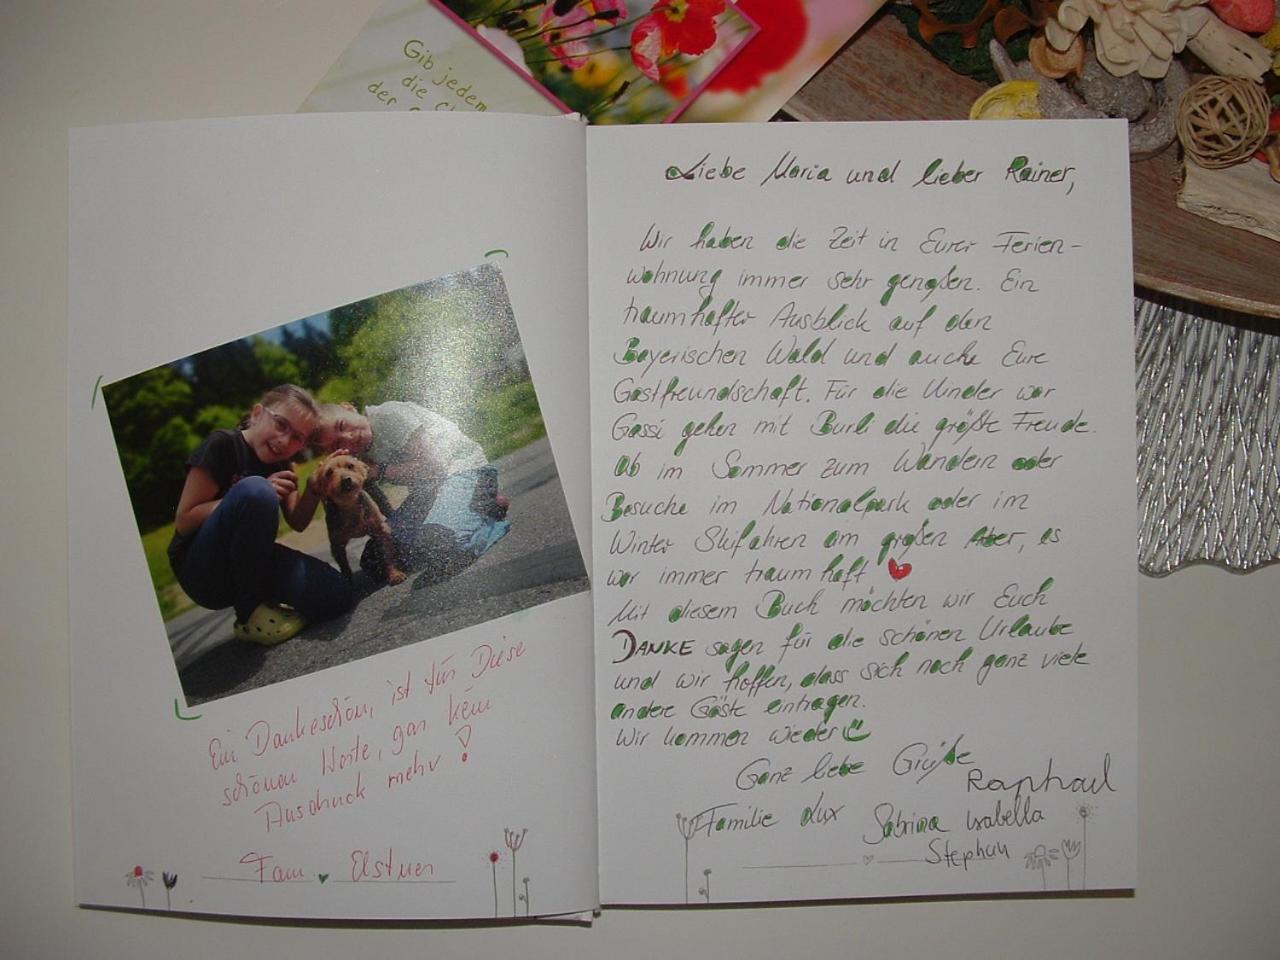 Gib jedem
die
der
Ein Dankeschön, ist für Diese
schönen Worte, gar kein
Ausdruck mehr!
Fam Elstner
Liebe Maria und lieber Rainer,
Wir haben die Zeit in Eurer Ferien-
wohnung immer sehr genoßen. Ein
traumhafter Ausblick auf den
Bayerischen Wald und auch Eure
Gastfreundschaft. Für die Kinder war
Gassi gehen mit Burli die größte Freude.
Ob im Sommer zum Wandern oder
Besuche im Nationalpark oder im
Winter Skifahren am großen Arber, es
war immer traumhaft ♥
Mit diesem Buch möchten wir Euch
DANKE sagen für die schönen Urlaube
und wir hoffen, dass sich noch ganz viele
andere Gäste eintragen.
Wir kommen wieder
Ganz liebe Grüße
Raphael
Familie Lux Sabrina Isabella
Stephan